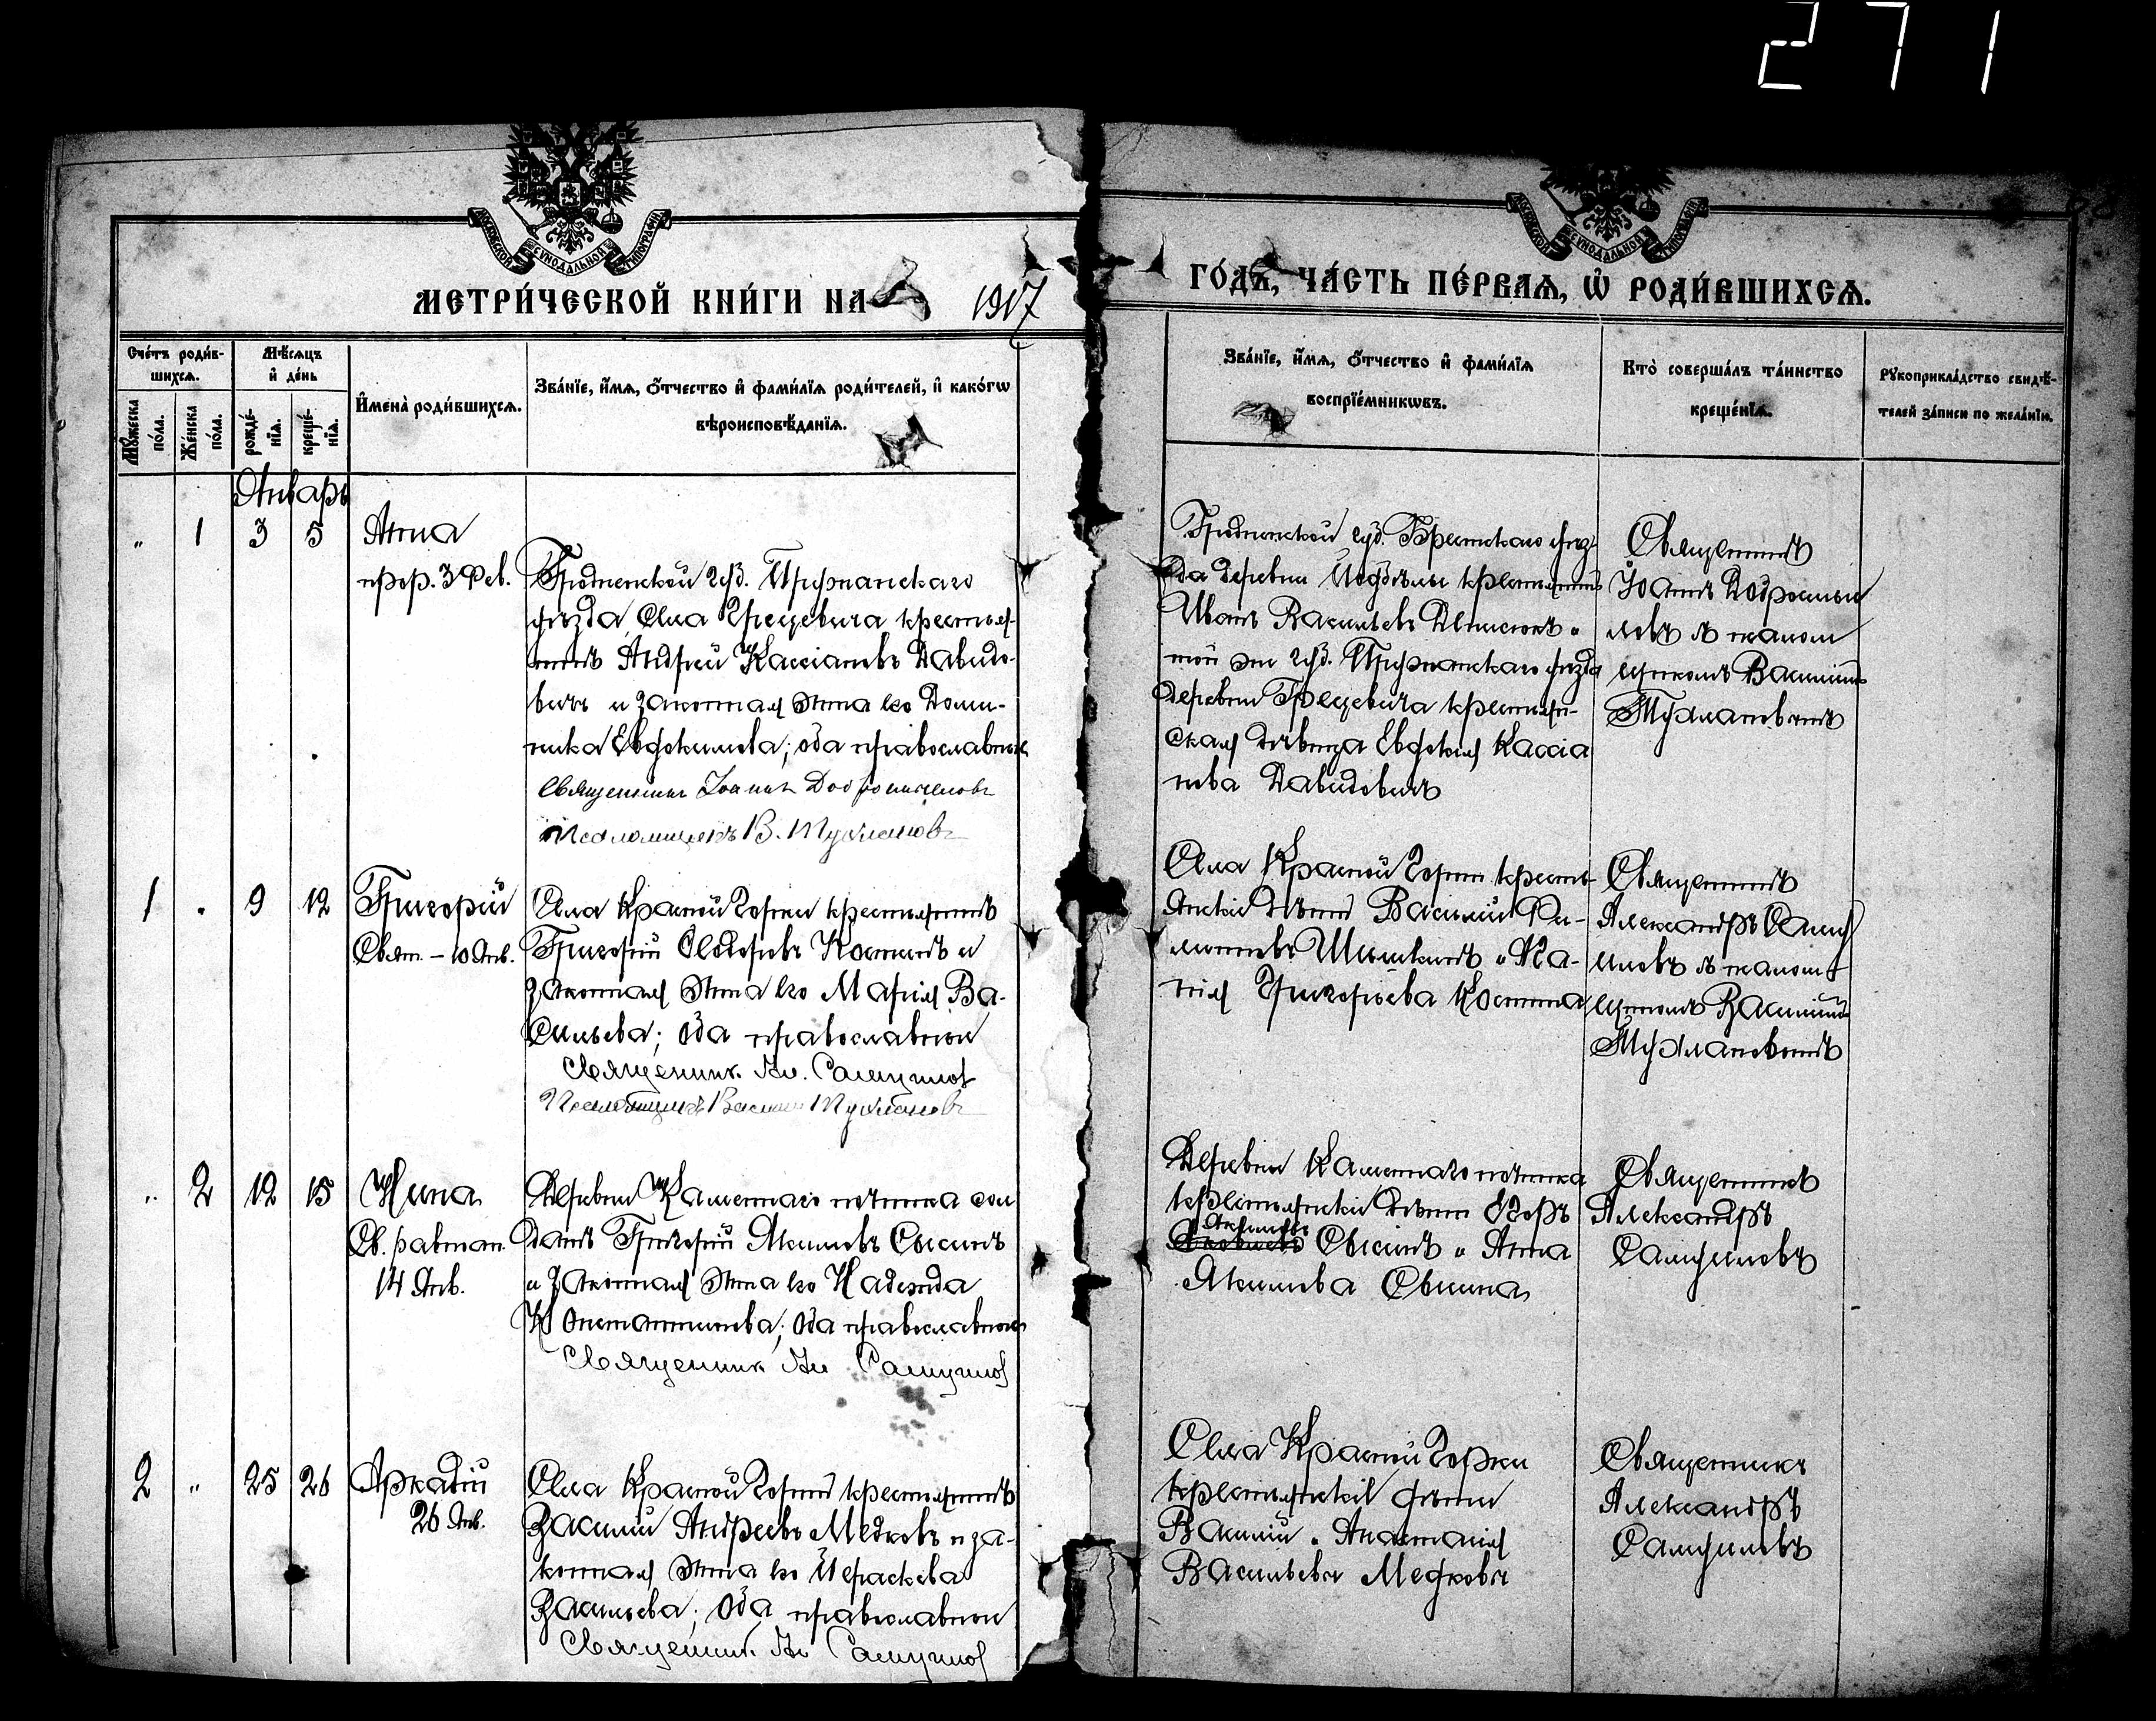 271
МОСКОВСКОЙ СѴНОДАЛЬНОЙ ТИПОГРАФІИ
МОСКОВСКОЙ СѴНОДАЛЬНОЙ ТИПОГРАФІИ
МЕТРИ́ЧЕСКОЙ КНИ́ГИ НА 1917 ГО́ДЪ, ЧА́СТЬ ПЕ́РВАЯ, Ѡ҆ РОДИ́ВШИХСЯ.
Сче́тъ роди́в-
шихся.
Мѣ́сяцъ
и҆ де́нь
Мꙋ́жеска по́ла.
Же́нска по́ла.
рожде́-
нїя.
креще́-
нїя.
И҆мена̀ роди́вшихся.
Зва́нїе, и҆́мя, ѻ҆́тчество и҆ фами́лїя роди́телей, и҆ како́гѡ
вѣроисповѣ́данїя.
Зва́нїе, и҆́мя, ѻ҆́тчество и҆ фами́лїя
воспрїе́мникѡвъ.
Кто̀ соверша́лъ та́инство
креще́нїя.
Рꙋкоприкла́дство свидѣ́-
телей за́писи по жела́нїю.
Январь
" 1 3 5
Анна
прор. 3 Фев.
Гродненской губ. Пружанскаго
уѣзда, села Грецевича крестья-
нинъ Андрей Кассіановъ Давидо-
вичъ и законная жена его Доми-
ника Евфимова; оба православные
Священникъ Іоаннъ Добросмысловъ
Псаломщикъ В. Тухлановъ
Гродненской губ. Брестскаго уѣз-
да деревни крестьянинъ
Иванъ Васильевъ Денисюкъ и
той же губ. Пружанскаго уѣзда
деревни Грецевича крестьян-
ская дѣвица Евфимія Кассіа
нова Давидовичъ
Священникъ
Іоаннъ Добросмы
словъ съ псалом
щикомъ Василіемъ
1 " 9 12
Григорій
Свят. – 10 Янв.
Села Красной Горки крестьянинъ
Григорій Ѳедоровъ Костинъ и
законная жена его Марія Ва-
сильева; оба православные
Священник. Ал. Самуилов
Псаломщикъ Василій Тухлановъ
Села Красной Горки кресть-
янскіе дѣти Василій Фи-
липповъ Шишкинъ и Ка-
Григорьева Костина
Священникъ
Александръ Саму
иловъ съ псалом
щикомъ Василіемъ
" 2 12 15
Нина
Св. равноап.
14 Янв.
Деревни Каменнаго починка сол
датъ Григорій Якимовъ Сысинъ
и законная жена его Надежда
Константинова; оба православные
Священник Ал Самуилов
Деревни Каменнаго починка
крестьянскіе дѣти Егоръ
Якимовъ
Сысинъ и Анна
Якимова Сысина
Священникъ
Александръ
Самуиловъ
2 " 25 26
Аркадій
26 Янв.
Села Красной Горки крестьянинъ
Василій Андреевъ Медковъ и за-
конная жена его Параскева
Васильева; оба православные
Священник. Ал Самуилов
Села Красной Горки
крестьянскіе дѣти
Василій и Анастасія
Васильевы Медковы
Священникъ
Александръ
Самуиловъ